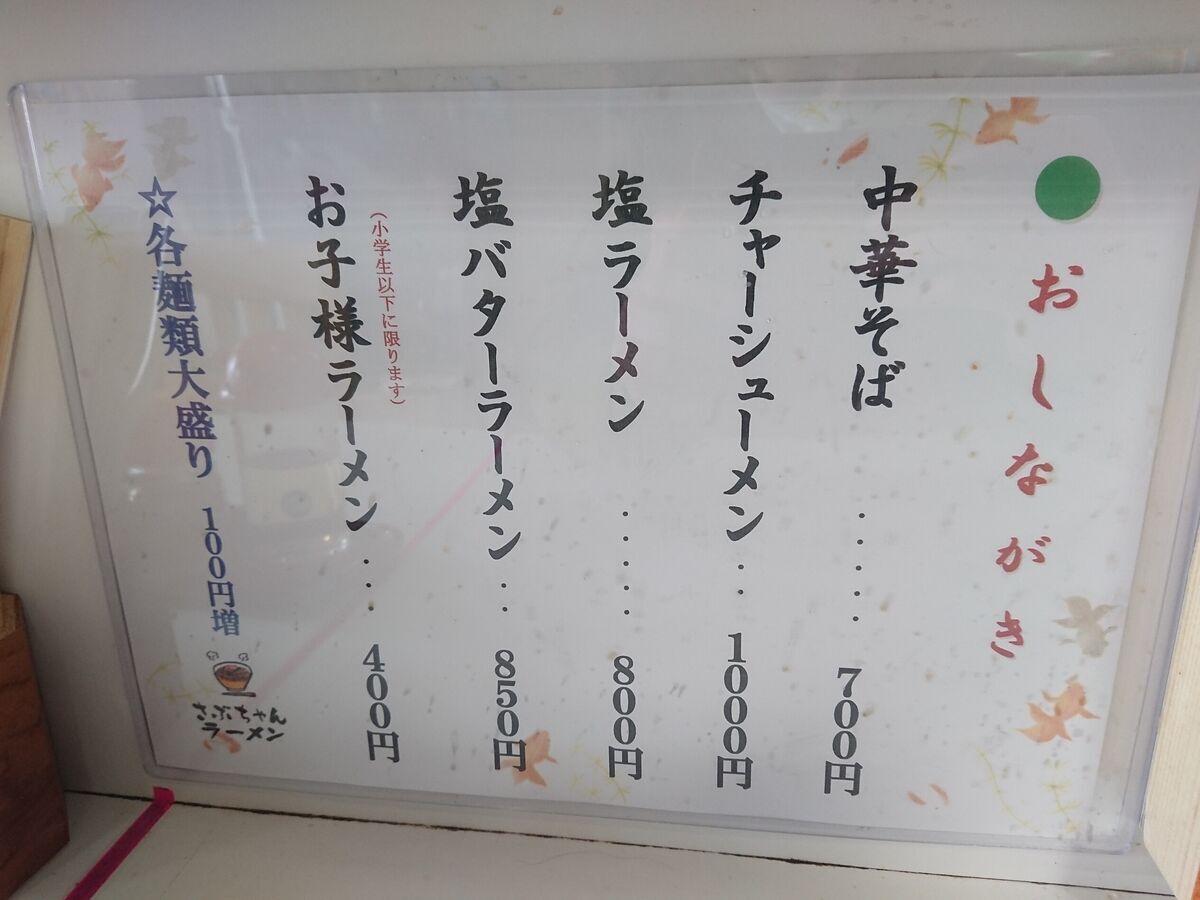 おしながき
中華そば・・・・・700円
チャーシューメン・・1000円
塩ラーメン・・・・・800円
塩バターラーメン・・850円
(小学生以下に限ります)
お子様ラーメン・・・400円
☆各麺類大盛り 100円増
さぶちゃん
ラーメン